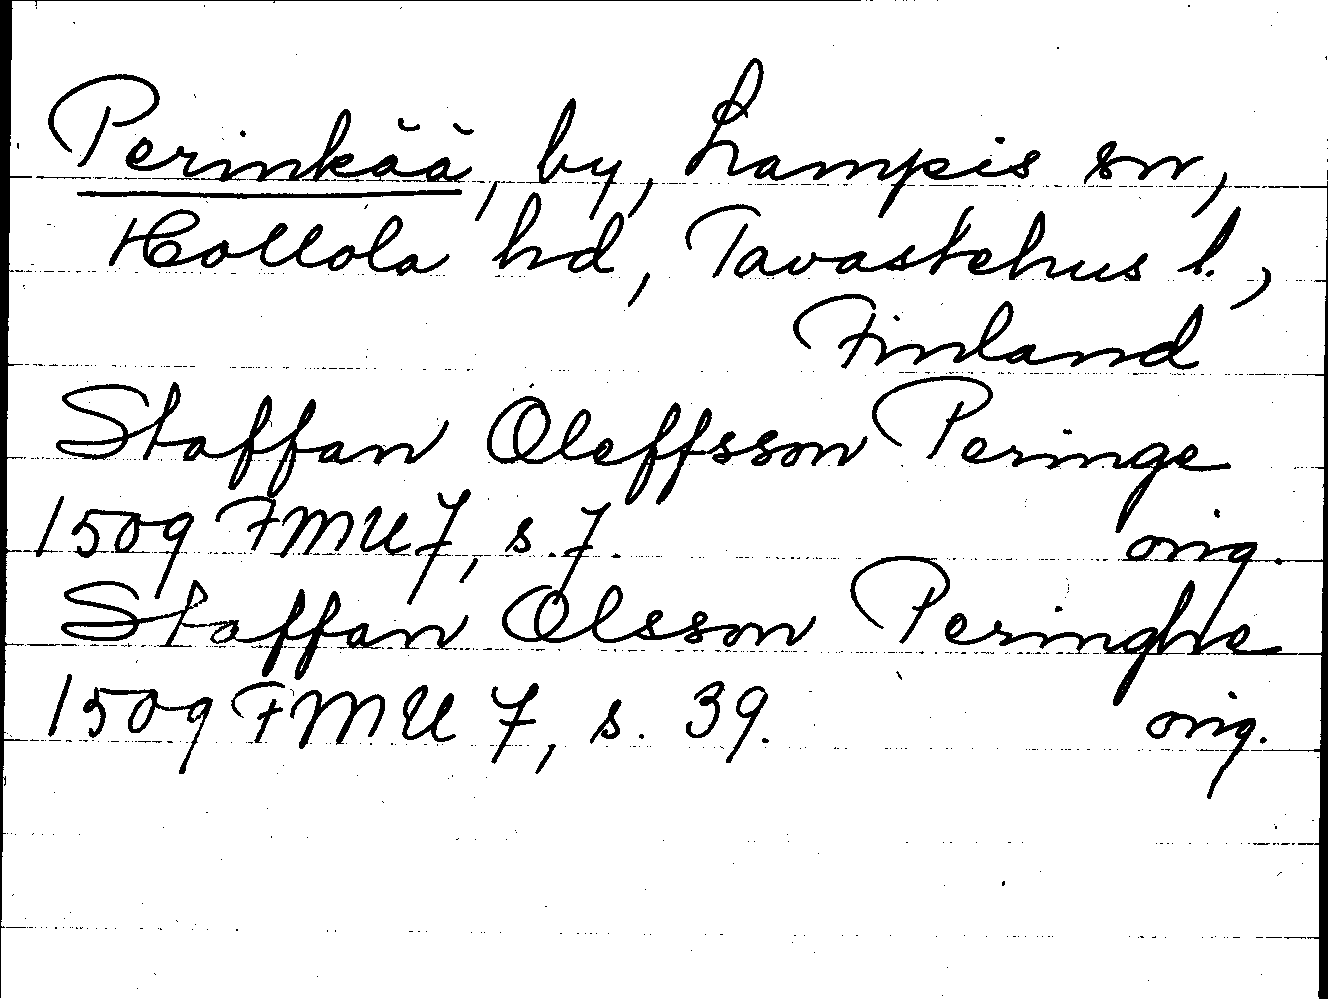 Perinkää, by, Lampis sn,
Hollola hd, Tavastehus l.,
Finland
Staffan Oleffsson Peringe
1509 FMU 7, s. 7. orig.
Staffan Olsson Peringhe
1509 FMU 7, s. 39. orig.